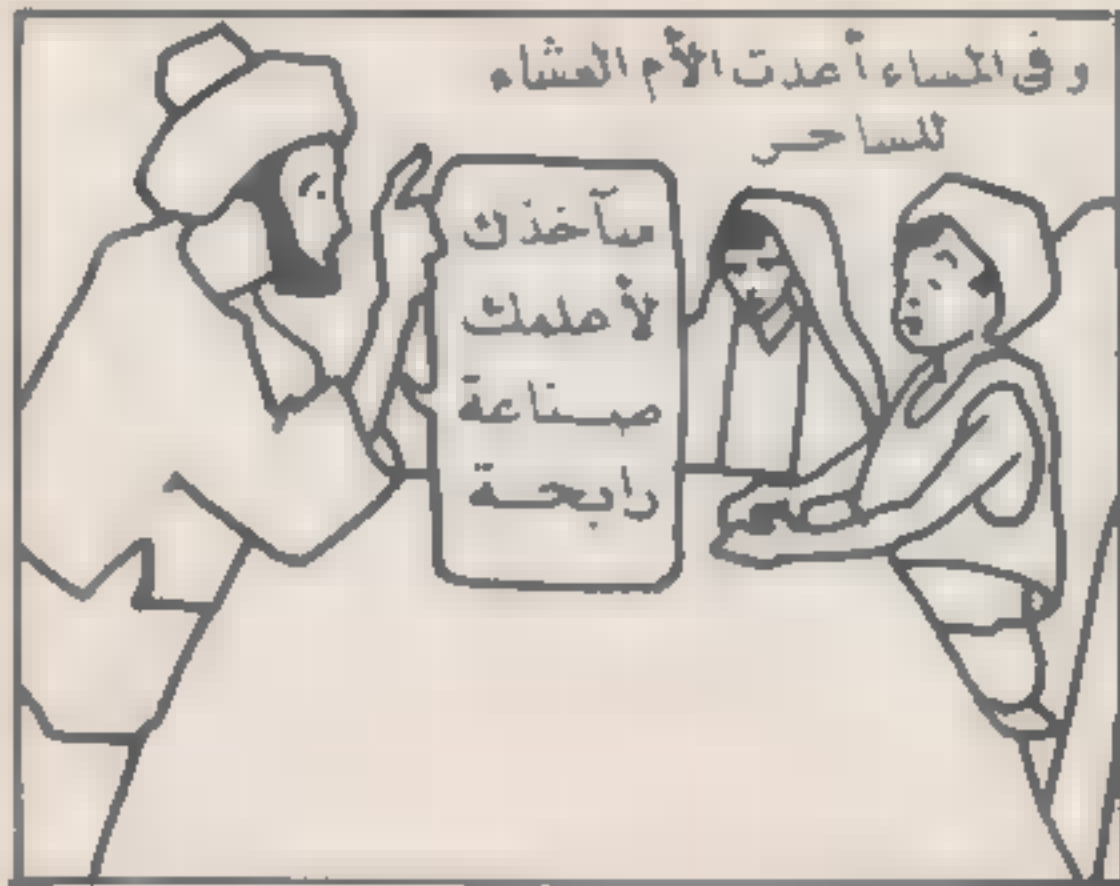 وفى المساء أعدت الأم العشاء
للساحر
سآخذك
لأعلمك
صناعة
رابحة